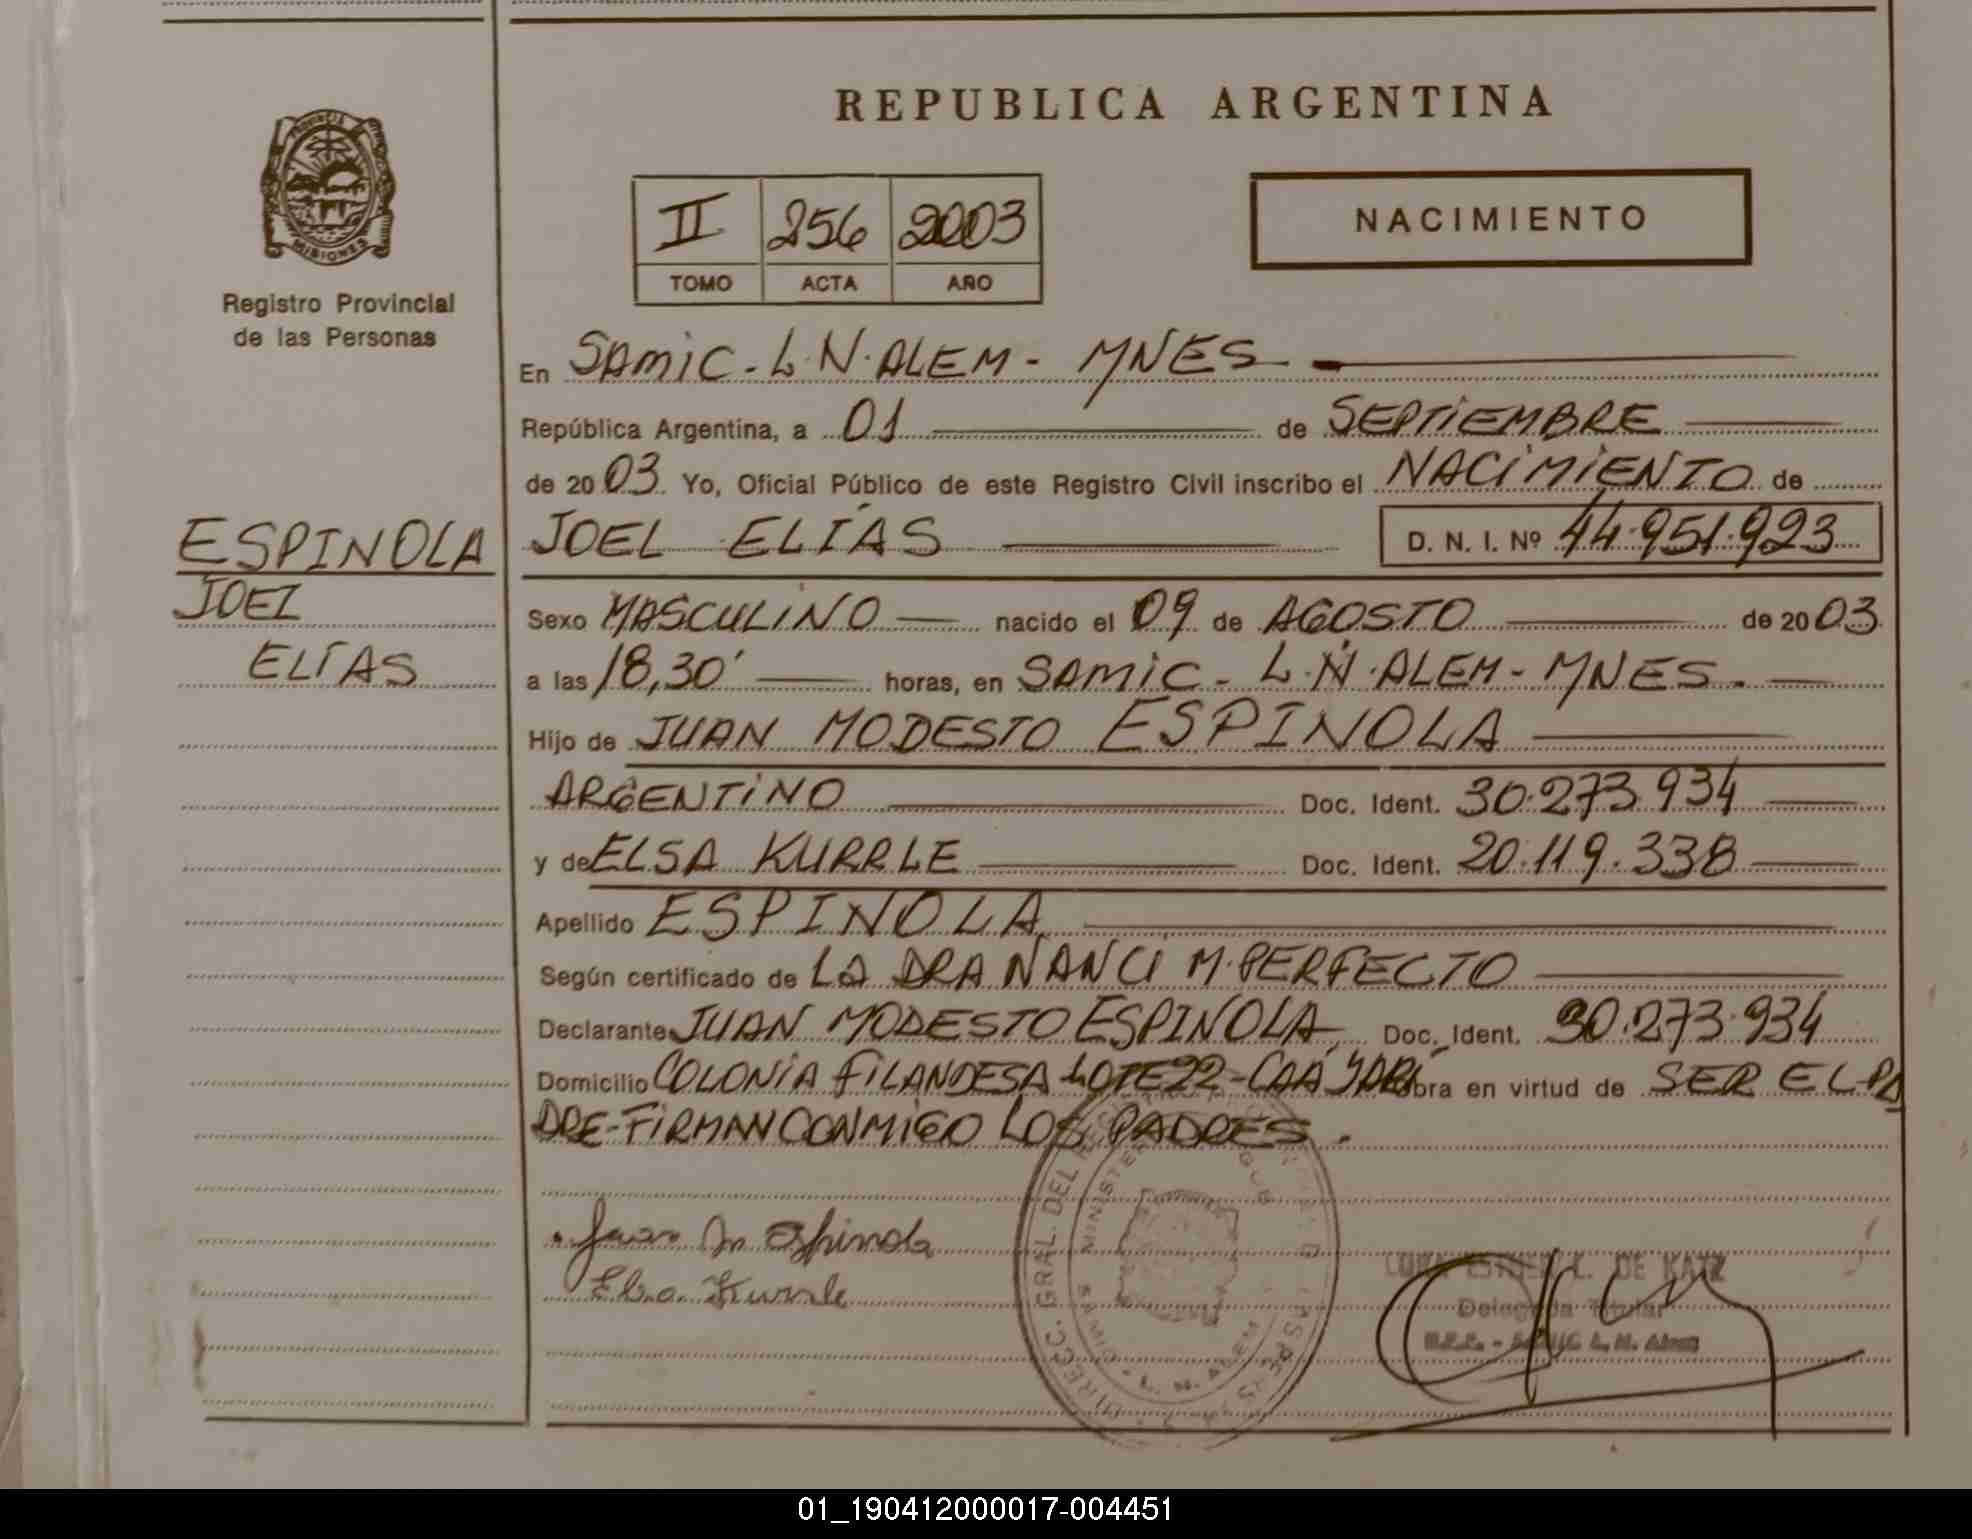 REPUBLICA ARGENTINA
PROVINCIA
MISIONES
Registro Provincial
de las Personas
II 256 2003
TOMO ACTA AÑO
NACIMIENTO
En SAMIC - L. N. ALEM - MNES
República Argentina, a 01 de SEPTIEMBRE
de 2003 Yo, Oficial Público de este Registro Civil inscribo el NACIMIENTO de
ESPINOLA
JOEL
ELÍAS
JOEL ELÍAS D. N. I. Nº 44.951.923
Sexo MASCULINO nacido el 09 de AGOSTO de 2003
a las 18,30' horas, en SAMIC - L. N. ALEM - MNES.
Hijo de JUAN MODESTO ESPINOLA
ARGENTINO Doc. Ident. 30.273.934
y de ELSA KURRLE Doc. Ident. 20.119.338
Apellido ESPINOLA
Según certificado de LA DRA NANCI M. PERFECTO
Declarante JUAN MODESTO ESPINOLA Doc. Ident. 30.273.934
Domicilio COLONIA FILANDESA LOTE 22 - CAÁ YARÍ obra en virtud de SER EL PA
DRE - FIRMAN CONMIGO LOS PADRES.
Juan M Espinola
Elsa Kurrle
DIRECC. GRAL. DEL
MINISTER
L. N. ALEM
DE KATZ
Delegada Titular
L. N. Alem
01_190412000017-004451